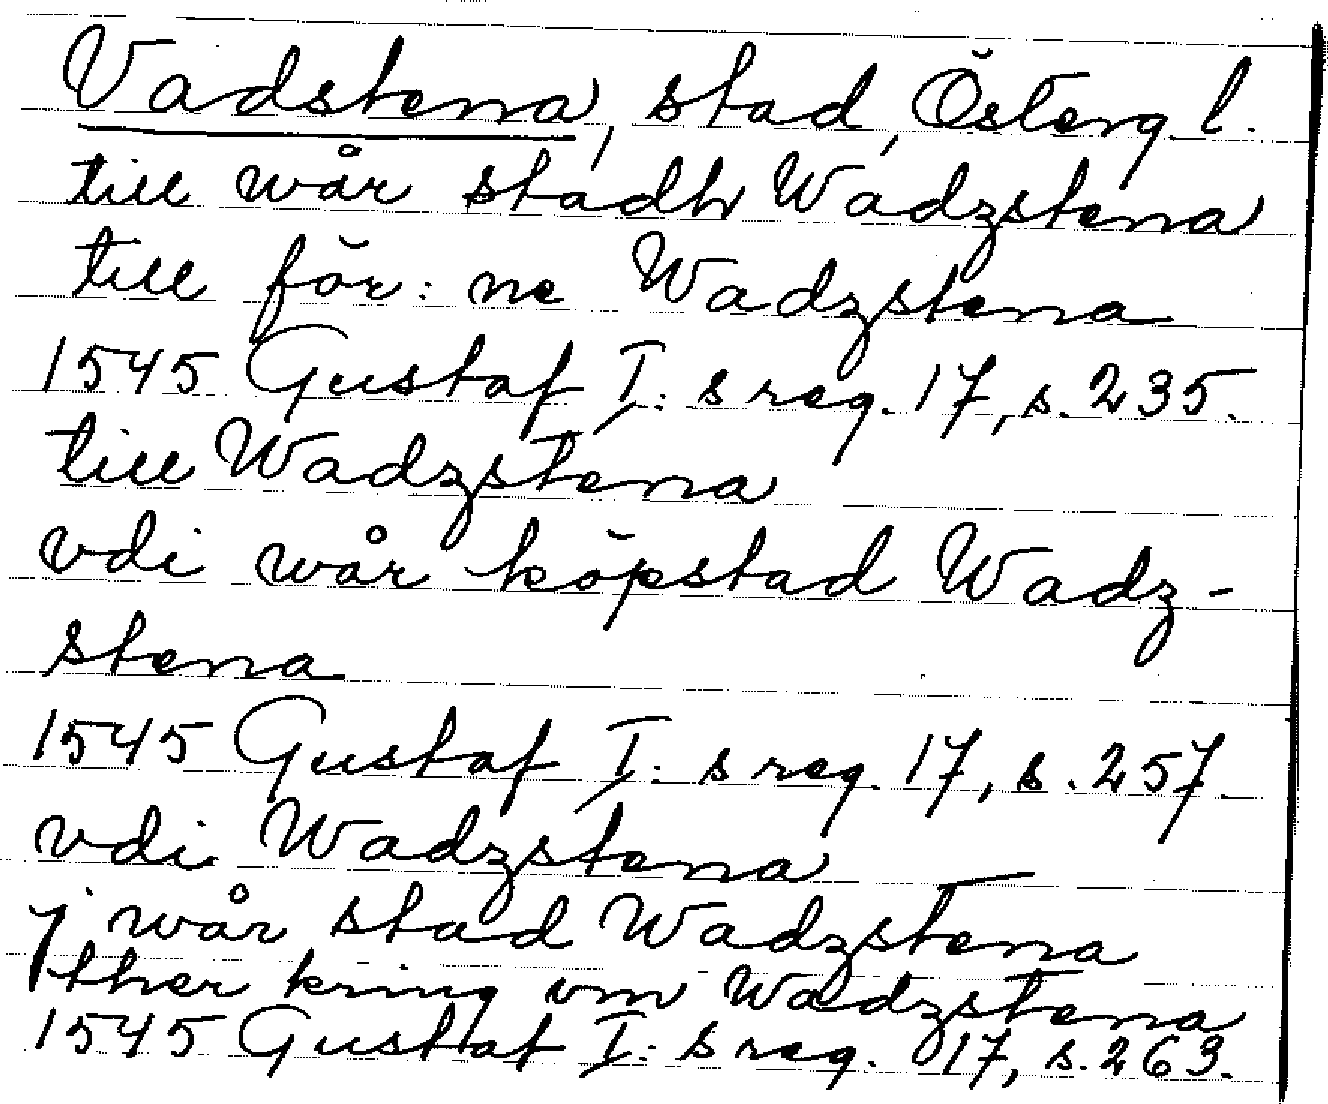 Vadstena, stad, Österg l.
till wår stadh Wadzstena
till för: ne Wadzstena
1545 Gustaf I: s reg. 17, s. 235.
till Wadzstena
vdi wår köpstad Wadz-
stena
1545 Gustaf I: s reg. 17, s. 257.
vdi Wadzstena
j wår stad Wadzstena
ther kring om Wadzstena
1545 Gustaf I: s reg. 17, s. 263.